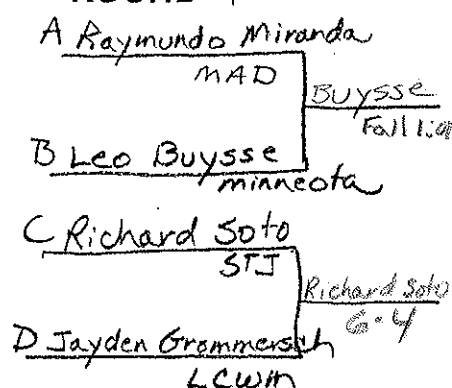 A Raymundo Miranda
MAD
Buysse
Fall
B Leo Buysse
minneota
C Richard Soto
STJ
Richard Soto
6-4
D Jayden Grammersch
LCWM